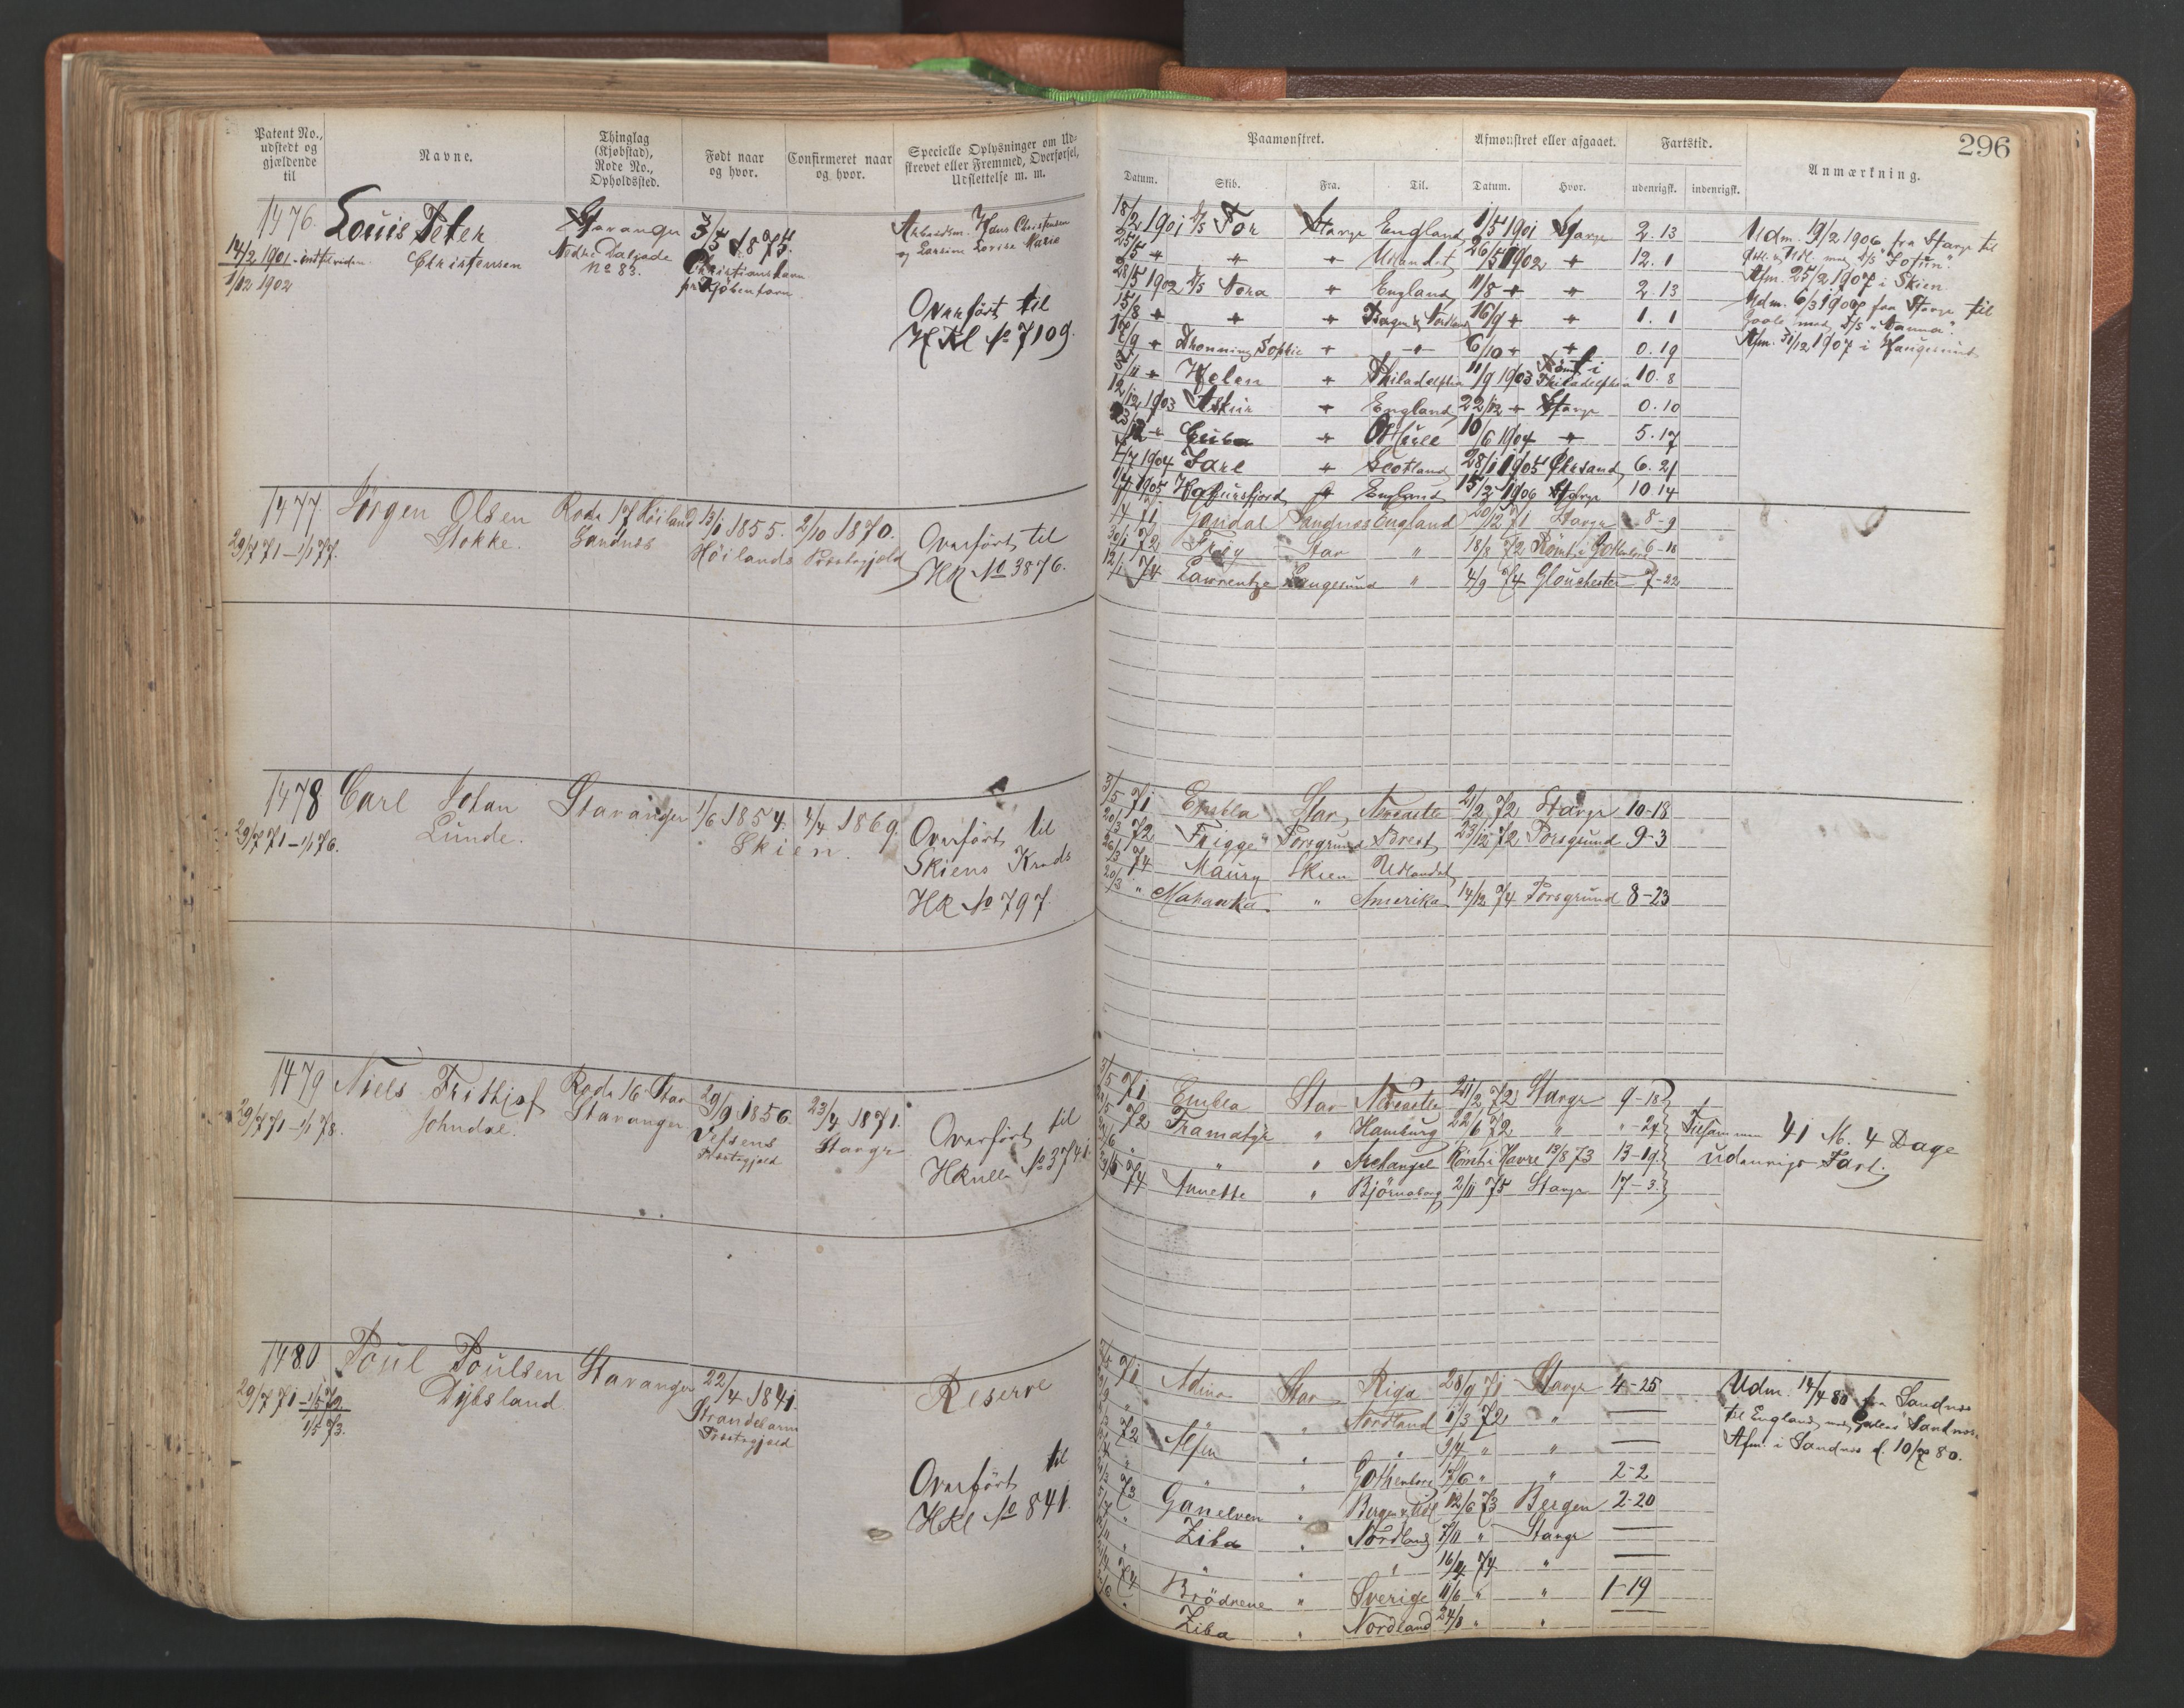 296
Patent No., udstedt og gjældende til
Navne.
Thinglag (Kjøbstad), Rode No., Opholdssted.
Født naar og hvor.
Confirmeret naar og hvor.
Specielle Oplysninger om Udskrevet eller Fremmed, Overførsel, Udslettelse m. m.
Paamønstret.
Afmønstret eller afgaaet.
Fartstid.
Anmærkning.
Datum.
Skib.
Fra.
Til.
Datum.
Hvor.
udenrigsk.
indenrigsk.
1476.
14/2 1901 - indtil viden
1/12 1902
Louis Peter
Christensen
Stavanger
Nedre Dalgade
No 83.
3/5 1875.
Christianshavn
pr Kjøbenhavn
Arbeidsm. Hans Christensen
og Larsine Lovise Marie
Overført til
HRl No 7109.
18/2 1901 D/S Tor Stavgr England 1/5 1901 Stavgr 2. 13
25/5 " " " Udlandet 26/5 1902 " 12. 1
28/5 1902 D/S Nora " England 11/8 " " 2. 13
15/8 " " " Bergen & Nordland 16/9 " " 1. 1
17/9 " Dronning Sophie " " 6/10 " " 0. 19
3/11 " Helen " Philadelphia 11/9 1903 Rømt i Philadelphia 10. 8
12/12 1903 Askur " England 22/12 " Stavgr 0. 10
" Cuba " Hull 10/6 1904 " 5. 17
7/7 1904 Jarl " Scotland 28/1 1905 Chrsand 6. 21
1/4 1905 Hafursfjord " England 15/2 1906 Stavgr 10 14
Udm. 19/2 1906 fra Stavgr til
Indl. & Udl. med D/S "Jotun".
Afm. 25/2 1907 i Skien
Udm. 6/3 1907 fra Stavgr til
Goole med D/S "Nanna".
Afm. 31/12 1907 i Haugesund
1477.
29/7 71 - 1/1 77.
Jørgen Olsen
Stokke.
Rode 17 Høiland
Sandnæs
13/1 1855.
Høilands
2/10 1870.
Præstegjeld
Overført til
HR No 3876.
1/4 71 Gandal Sandnæs England 20/12 71 Stavgr 8-9
30/1 72 Frey Stav " 18/8 72 Rømt i Gothenborg 6-18
12/1 74 Lawrentze Langesund " 4/9 74 Glouchester 7-22
1478
29/7 71 - 1/1 76.
Carl Johan
Lunde.
Stavanger
1/6 1854.
4/4 1869.
Skien.
Overført til
Skiens Kreds
HR No 797
3/5 71 Embla Stav Newcastle 21/2 72 Stavgr 10-18
20/3 72 Frigge Porsgrund Brest 23/12 72 Porsgrund 9-3
26/3 74 Maury Skien Udlandet
20/3 " " Amerika 14/12 74 Porsgrund 8-23
1479
29/7 71 - 1/1 78.
Niels Frithjof
Johndal.
Rode 16 Stav
Stavanger
29/9 1856.
Vefsens
Præstegjeld
23/4 1871.
Stavgr
Overført til
HRulle No 3741.
3/5 71 Embla Stav Newcastle 21/2 72 Stavgr 9-18
72 Framatgr " Hamburg 22/6 72 " "-24
" " " Archangel Rømt i Havre 19/8 73 13-19
74 Annette " Bjørneborg 2/11 75 Stavgr 17-3
Tilsammen 41 M. 4 Dage
udenrigs Fart.
1480
29/7 71 - 1/5 72
1/5 73.
Poul Poulsen
Dybsland
Stavanger
22/4 1841.
Strandebarm
Præstegjeld
Reserve
Overført til
HRl No 841.
71 Adina Stav Riga 28/9 71 Stavgr 4-25
" " " Nordland 1/3 72 "
72 Alfen " " 9/4 " "
" " " Gothenborg 17/6 " " 2-2
73 Ganelven " Bergen & Udl 12/6 73 Bergen 2-20
" Ziba " Nordland 7/11 " Stavgr
" " " " 16/4 74 "
74 Brødrene " Sverige 11/6 " " 1-19
" Ziba " Nordland 24/8 " "
Udm. 14/4 80 fra Sandnæs
til England med Sandnæs
Afm. i Sandnæs d. 10/7 80.